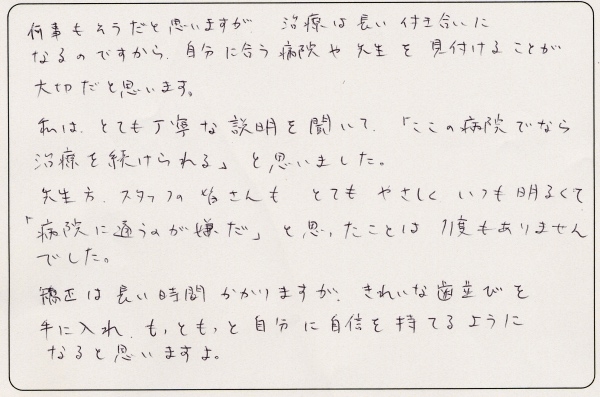 何事もそうだと思いますが 治療は長い付き合いに
なるのですから、自分に合う病院や先生を見付けることが
大切だと思います。
私は、とても丁寧な説明を聞いて、「ここの病院でなら
治療を続けられる」と思いました。
先生方、スタッフの皆さんも とても やさしく いつも明るくて
「病院に通うのが嫌だ」と思ったことは 1度もありません
でした。
矯正は長い時間かかりますが、きれいな歯並びを
手に入れ、もっともっと自分に自信を持てるように
なると思いますよ。